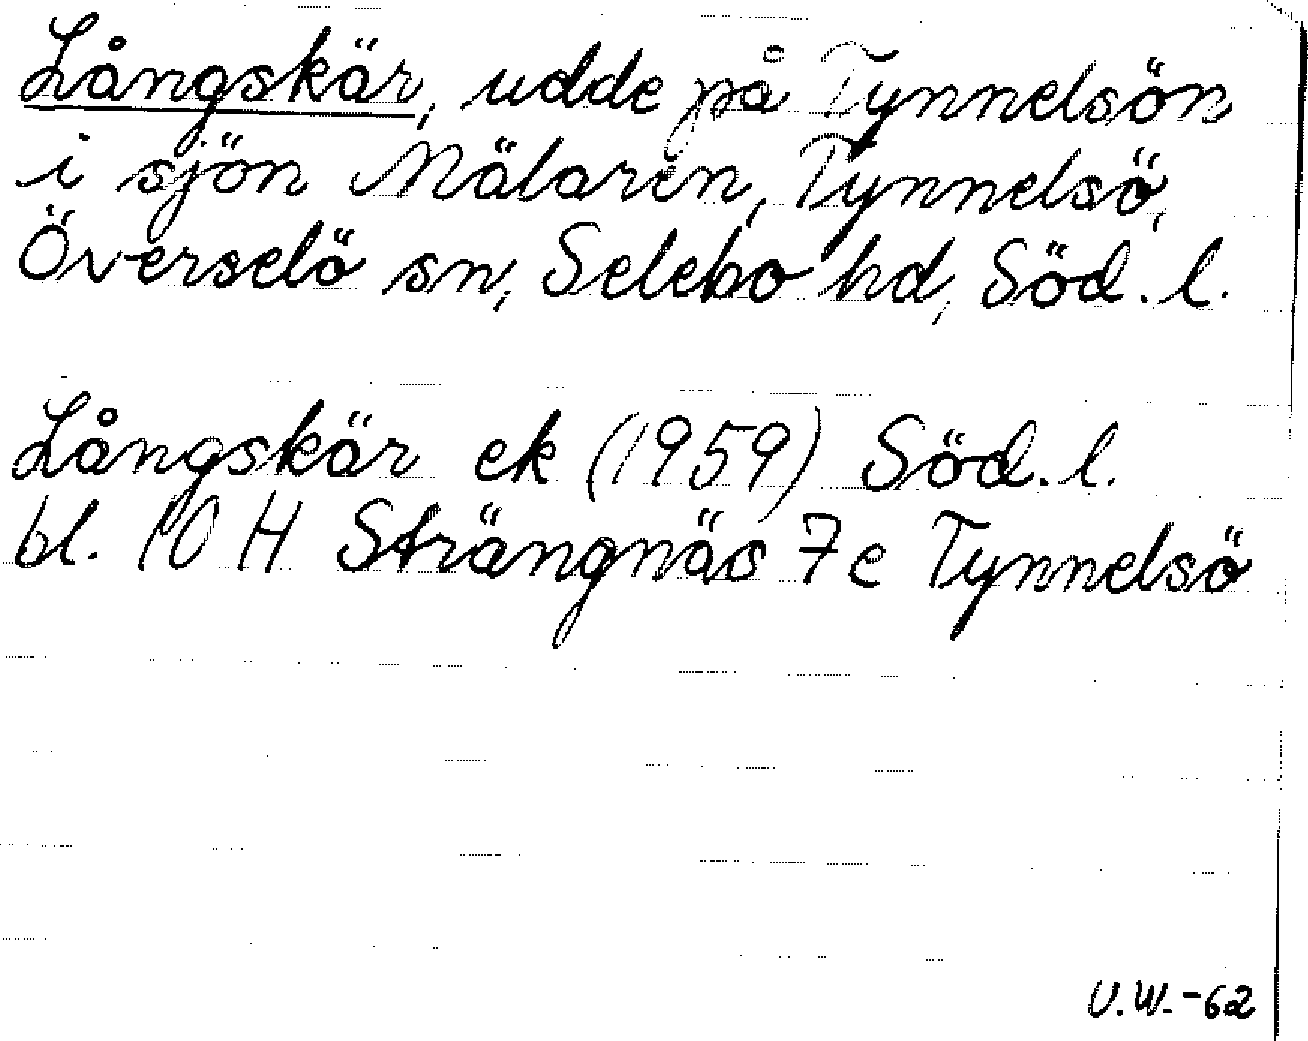 Långskär, udde på Tynnelsön
i sjön Mälaren, Tynnelsö,
Överselö sn, Selebo hd, Söd. l.
Långskär ek (1959) Söd. l.
bl. 10 H Strängnäs 7e Tynnelsö
U.W.-62